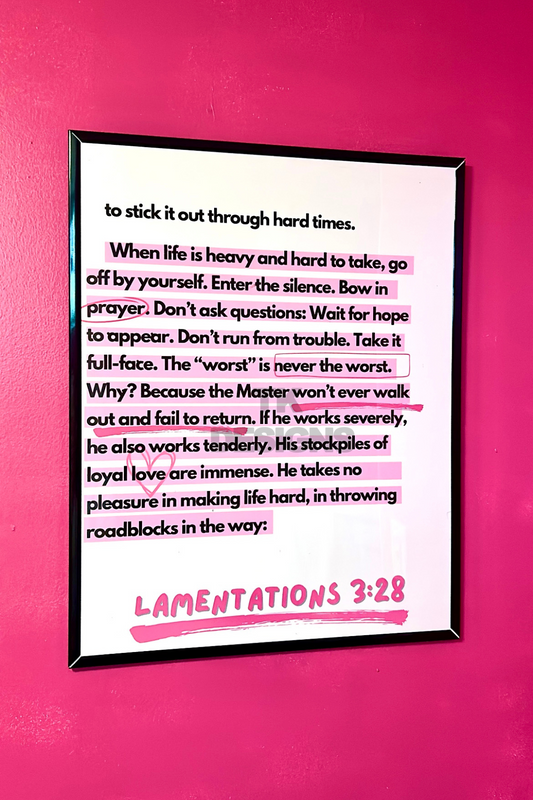 to stick it out through hard times.
When life is heavy and hard to take, go
off by yourself. Enter the silence. Bow in
prayer. Don’t ask questions: Wait for hope
to appear. Don’t run from trouble. Take it
full-face. The “worst” is never the worst.
Why? Because the Master won’t ever walk
out and fail to return. If he works severely,
he also works tenderly. His stockpiles of
loyal love are immense. He takes no
pleasure in making life hard, in throwing
roadblocks in the way:
LAMENTATIONS 3:28
DESIGNS